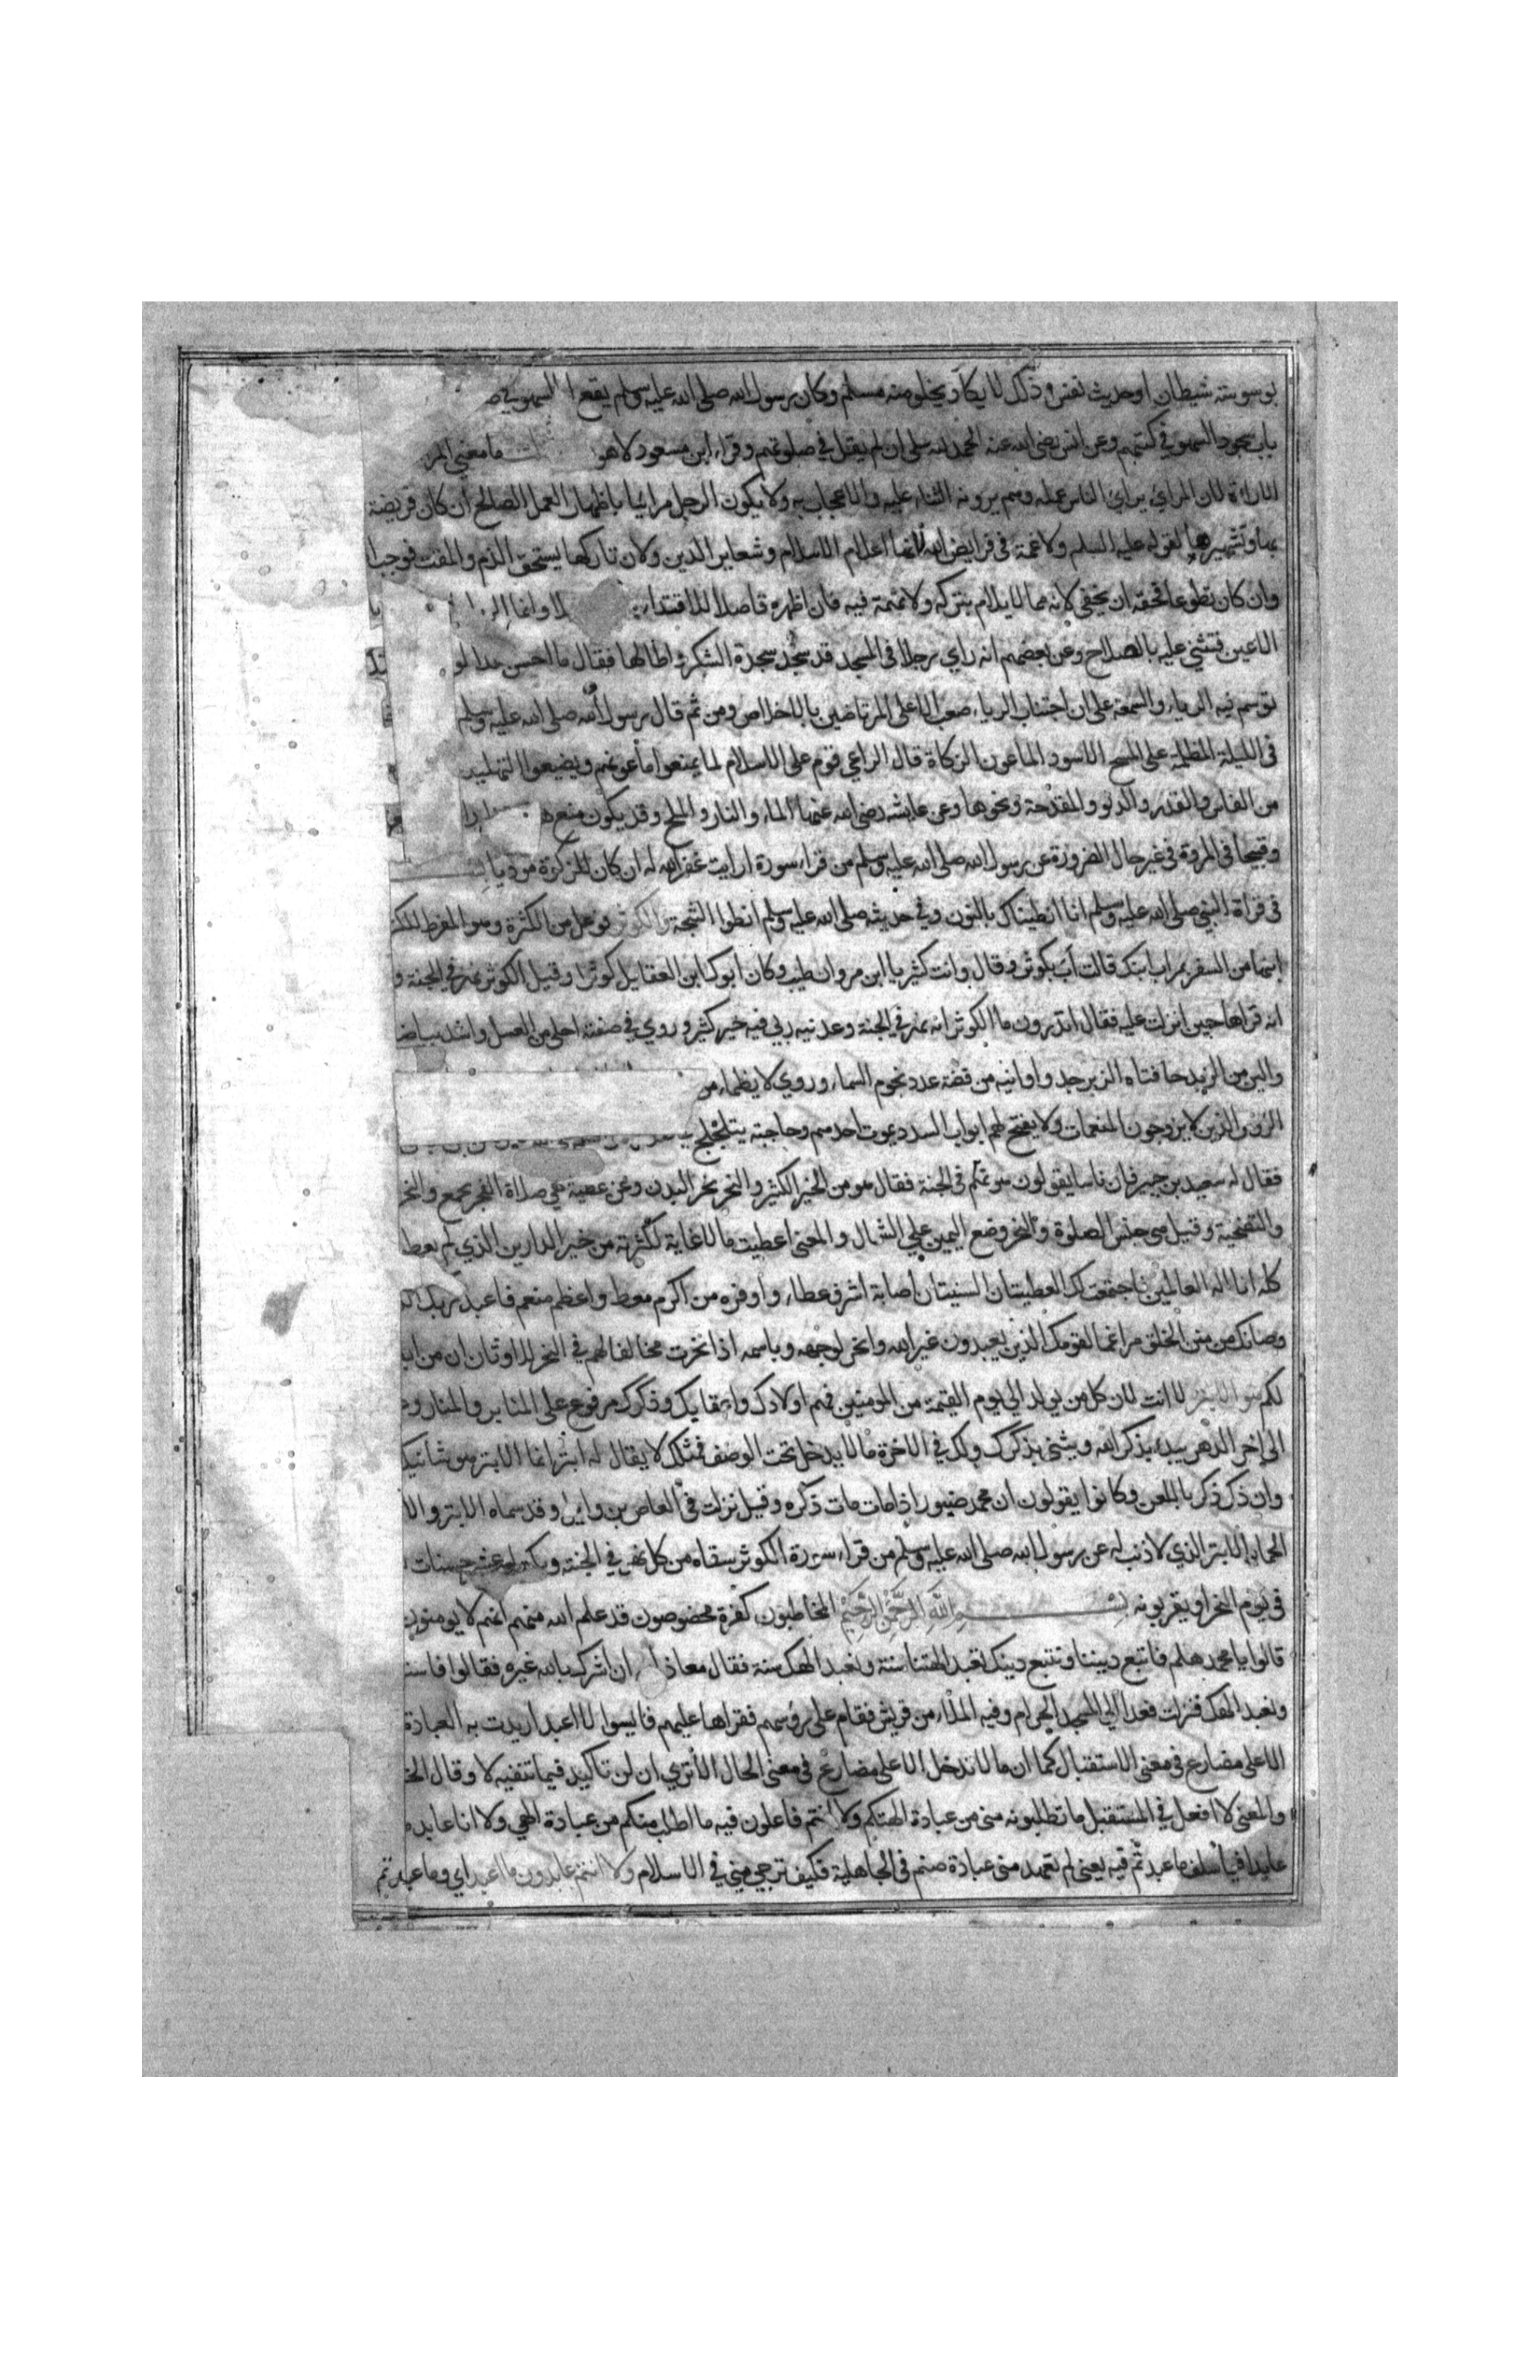 بوسوسة شيطان او حديث نفس وذلك لا يكاد يخلو منه مسلم وكان رسول الله صلى الله عليه وسلم يقع السهو في ص
باب سجود السهو في كتبهم وعن انس رضى الله عنه الحمد لله على ان لم يقل في صلوتهم وقراء ابن مسعود لاهو ما معنى المر
المراءاة لان المرائي يرائ الناس عمله وهم يرونه الثناء عليه والاعجاب به ولا يكون الرجل مرائيا باظهار العمل الصالح ان كان فريضة
بها وتشهيرها لقوله عليه السلم ولا غمة في فرايض الله لانها اعلام الاسلام وشعاير الدين ولان تاركها يستحق الذم والمقت فوجب ا
وان كان تطوعا فحقه ان يخفى لانه مما لا يلام بتركه ولا تهمة فيه فان اظهره قاصدا للاقتداء وانما الر
الاعين فتثني عليه بالصلاح وعن بعضهم انه راي رجلا في المسجد قد سجد سجدة الشكر واطالها فقال ما احسن هذا لو
توسم فيه الرياء والسمعة على ان اجتناب الرياء صعب الا على المرتاضين بالاخلاص ومن ثم قال رسول الله صلى الله عليه وسلم
في الليلة المظلمة على المسح الاسود الماعون الزكاة قال الراعي قوم على الاسلام لما يمنعوا ماعونهم ويضيعوا التهليل
من الفاس والقدر والدلو والمقدحة ونحوها وعن عايشه رضى الله عنها الماء والنار والملح وقد يكون منع ه
وقبيحا في المروة في غير حال الضرورة عن رسول الله صلى الله عليه وسلم من قراء سورة ارايت غفر الله له ان كان للزكوة موديا
في قراة النبي صلى الله عليه وسلم انا انطيناك بالنون وفي حديثه صلى الله عليه وسلم انطوا الثبجة والكوثر فوعل من الكثرة وهو المفرط الكثر
ابنها من السفر بم اب ابنك قالت اب بكوثر وقال وانت كثير يا ابن مروان طيب وكان ابوك ابن العقايل كوثرا وقيل الكوثر نهر في الجنة و
انه قراها حين انزلت عليه فقال اتدرون ما الكوثر انه نهر في الجنة وعدنيه ربي فيه خير كثير وروي في صفته احلى من العسل واشد بياضا
والين من الزبد حافتاه الزبرجد واوانيه من فضة عدد نجوم السماء وروي لا يظماء من
الروس الذين لا يزوجون المنعمات ولا يفتح لهم ابواب السدد يموت احدهم وحاجته يتلجلج
فقال له سعيد بن جبير فان ناسا يقولون هو نهر في الجنة فقال هو من الخير الكثير والنحر نحر البدن وعن عطية هي صلاة الفجر بجمع والنحر
والتضحية وقيل هي جنس الصلوة والنحر وضع اليمين على الشمال والمعنى اعطيت ما لا غاية لكثرته من خير الدارين الذي لم يعطه
كله انا اله العالمين فاجتمعت لك العطيتان السنيتان اصابة اشرف عطاء واوفره من اكرم معط واعظم منعم فاعبد ربك ال
وصانك من منن الخلق مراغما لقومك الذين يعبدون غير الله وانحر لوجهه وباسمه اذا نحرت مخالفا لهم في النحر للاوثان ان من اب
لكم هو الابتر لا انت لان كل من يولد الي يوم القيمة من المومنين فهم اولادك واعقابك وذكرك مرفوع على المنابر والمنار و
الى اخر الدهر يبداء بذكر الله ويثني بذكرك ولك في الاخرة ما لا يدخل تحت الوصف فمثلك لا يقال له ابتر انما الابتر هو شانيك
وان ذكر ذكر باللعن وكانوا يقولون ان محمد صنبور اذا مات مات ذكره وقيل نزلت في العاص بن وايل وقد سماه الابتر والا
الحمار الابتر الذي لا ذنب له عن رسول الله صلى الله عليه وسلم من قراء سورة الكوثر سقاه من كل نهر في الجنة ويكتب له عشر حسنات
في يوم النحر او يقربونه بسم الله الرحمن الرحيم المخاطبون كفرة مخصوصون قد علم الله منهم انهم لا يومنون
قالوا يا محمد هلم فاتبع ديننا ونتبع دينك تعبد الهتنا سنة ونعبد الهك سنة فقال معاذ الله ان اشرك بالله غيره فقالوا فاست
ونعبد الهك فنزلت فغدا الي المسجد الحرام وفيه الملاء من قريش فقام على رؤسهم فقراها عليهم فايسوا لا اعبد اريدت به العبادة
الا على مضارع في معنى الاستقبال كما ان ما لا تدخل الا على مضارع في معنى الحال الا تري ان لن تاكيد فيما تنفيه لا وقال الخ
والمعنى لا افعل في المستقبل ما تطلبونه منى من عبادة الهتكم ولا انتم فاعلون فيه ما اطلب منكم من عبادة الهي ولا انا عابد م
عابدا فيما سلف ما عبدتم فيه يعنى لم تعهد منى عبادة صنم في الجاهلية فكيف ترجي مني في الاسلام ولا انتم عابدون ما اعبد اي وما عبدتم